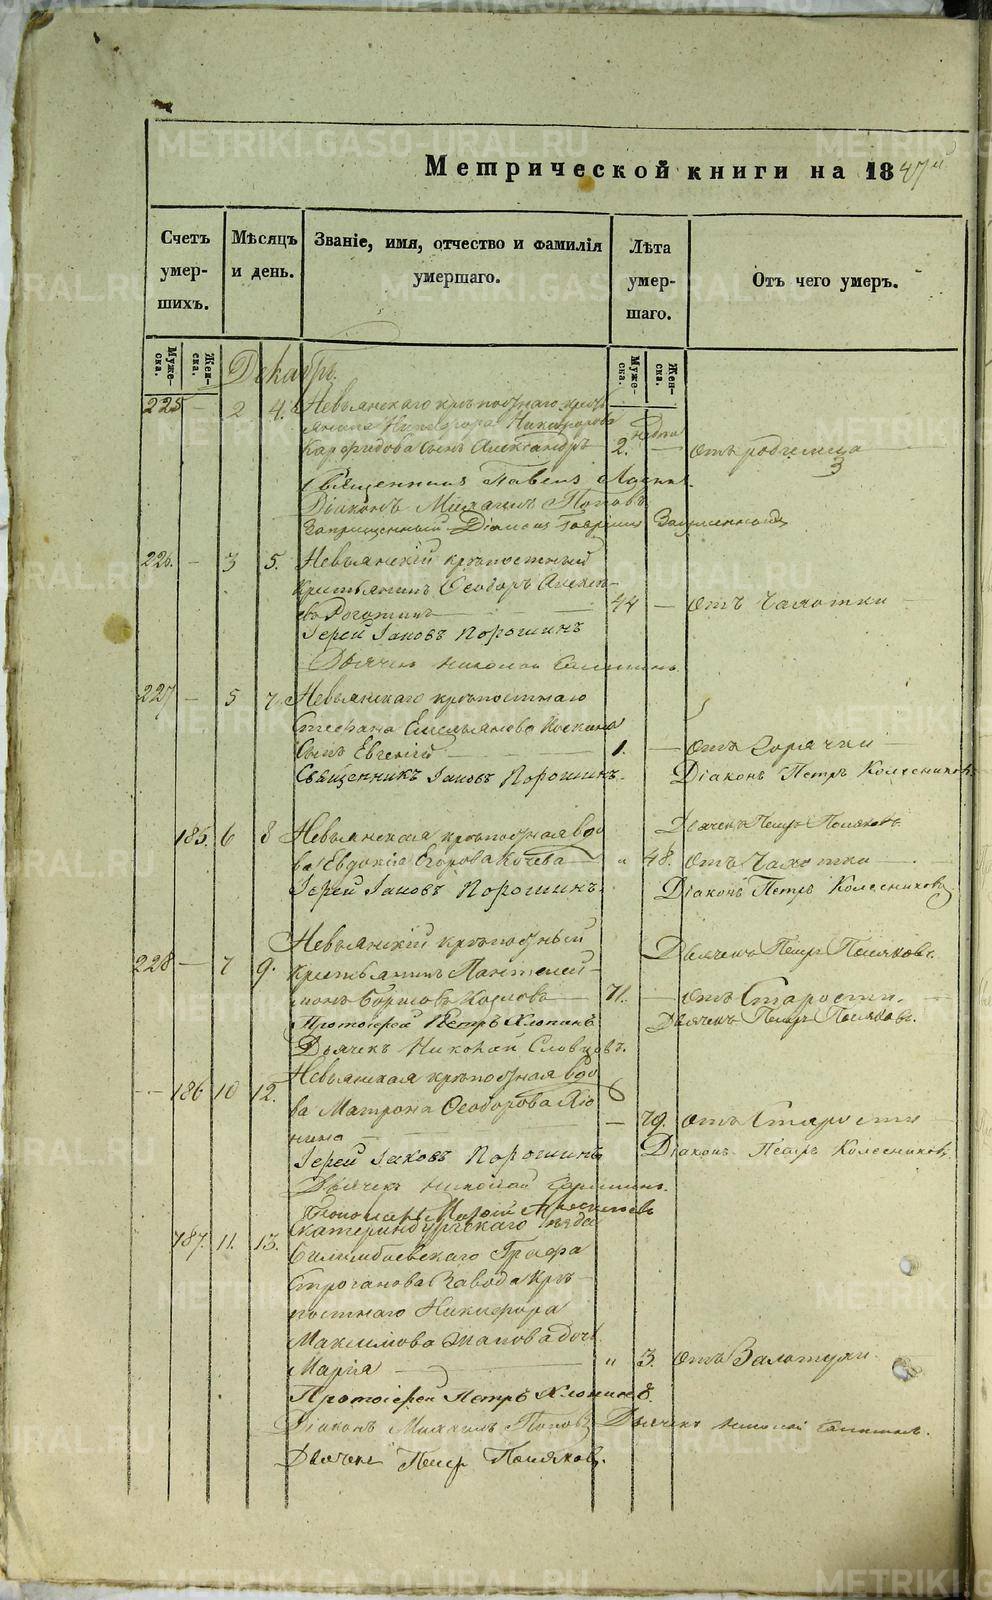 METRIKI.GASO-URAL.RU
Метрической книги на 1847й
Счетъ умер- шихъ.
Мѣсяцъ и день.
Званіе, имя, отчество и фамилія умершаго.
Лѣта умер- шаго.
Отъ чего умеръ.
Муже- ска. Жен- ска. Муже- ска. Жен- ска.
Декабрь.
225 — 2 4. Невьянскаго крѣпостнаго кресть
янина Никифорова
сынъ Александръ 2. недѣли — отъ родимца
Священникъ Павелъ
Діаконъ Михаилъ Поповъ
Запрещенный Діаконъ Гавріилъ
226. — 3 5. Невьянскій крѣпостный
крестьянинъ Ѳеодоръ Алексѣ-
евъ Рогатинъ — 44 — отъ Чахотки
Іерей Іаковъ Порошинъ
Дьячекъ Николай
227 — 5 7. Невьянскаго крѣпостнаго
Стефана Емельянова
сынъ Евгеній — 1. — отъ горячки —
Священникъ Іаковъ Порошинъ. Діаконъ Петръ Колесниковъ
Дьячекъ Петръ Поляковъ
185. 6 8 Невьянская крѣпостная вдо
ва Евдокія Егорова Кочева — „ 48. отъ Чахотки —
Іерей Іаковъ Порошинъ. Діаконъ Петръ Колесниковъ
Дьячекъ Петръ Поляковъ.
228 — 7 9. Невьянскій крѣпостный
крестьянинъ Пантелей-
монъ Борисовъ Козловъ — 71. — отъ Старости.
Протоіерей Петръ Хлопинъ Дьячекъ Петръ Поляковъ.
Дьячекъ Николай Словцовъ.
— 186 10 12. Невьянская крѣпостная вдо
ва Матрона Ѳеодорова
— 79. отъ Старости
Іерей Іаковъ Порошинъ Діаконъ Петръ Колесниковъ
Дьячекъ Николай
Пономарь
187. 11. 13. Екатеринбургскаго уѣзда
Билимбаевскаго Графа
Строганова Завода крѣ-
постнаго Никифора
Максимова дочь
Марія — „ 3. отъ Золотухи.
Протоіерей Петръ Хлопинъ.
Діаконъ Михаилъ Поповъ Дьячекъ Николай
Дьячекъ Петръ Поляковъ.